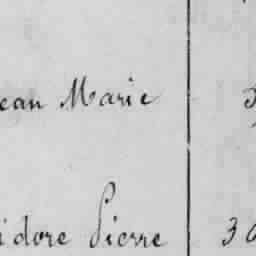 ean Marie
idore Pierre 30